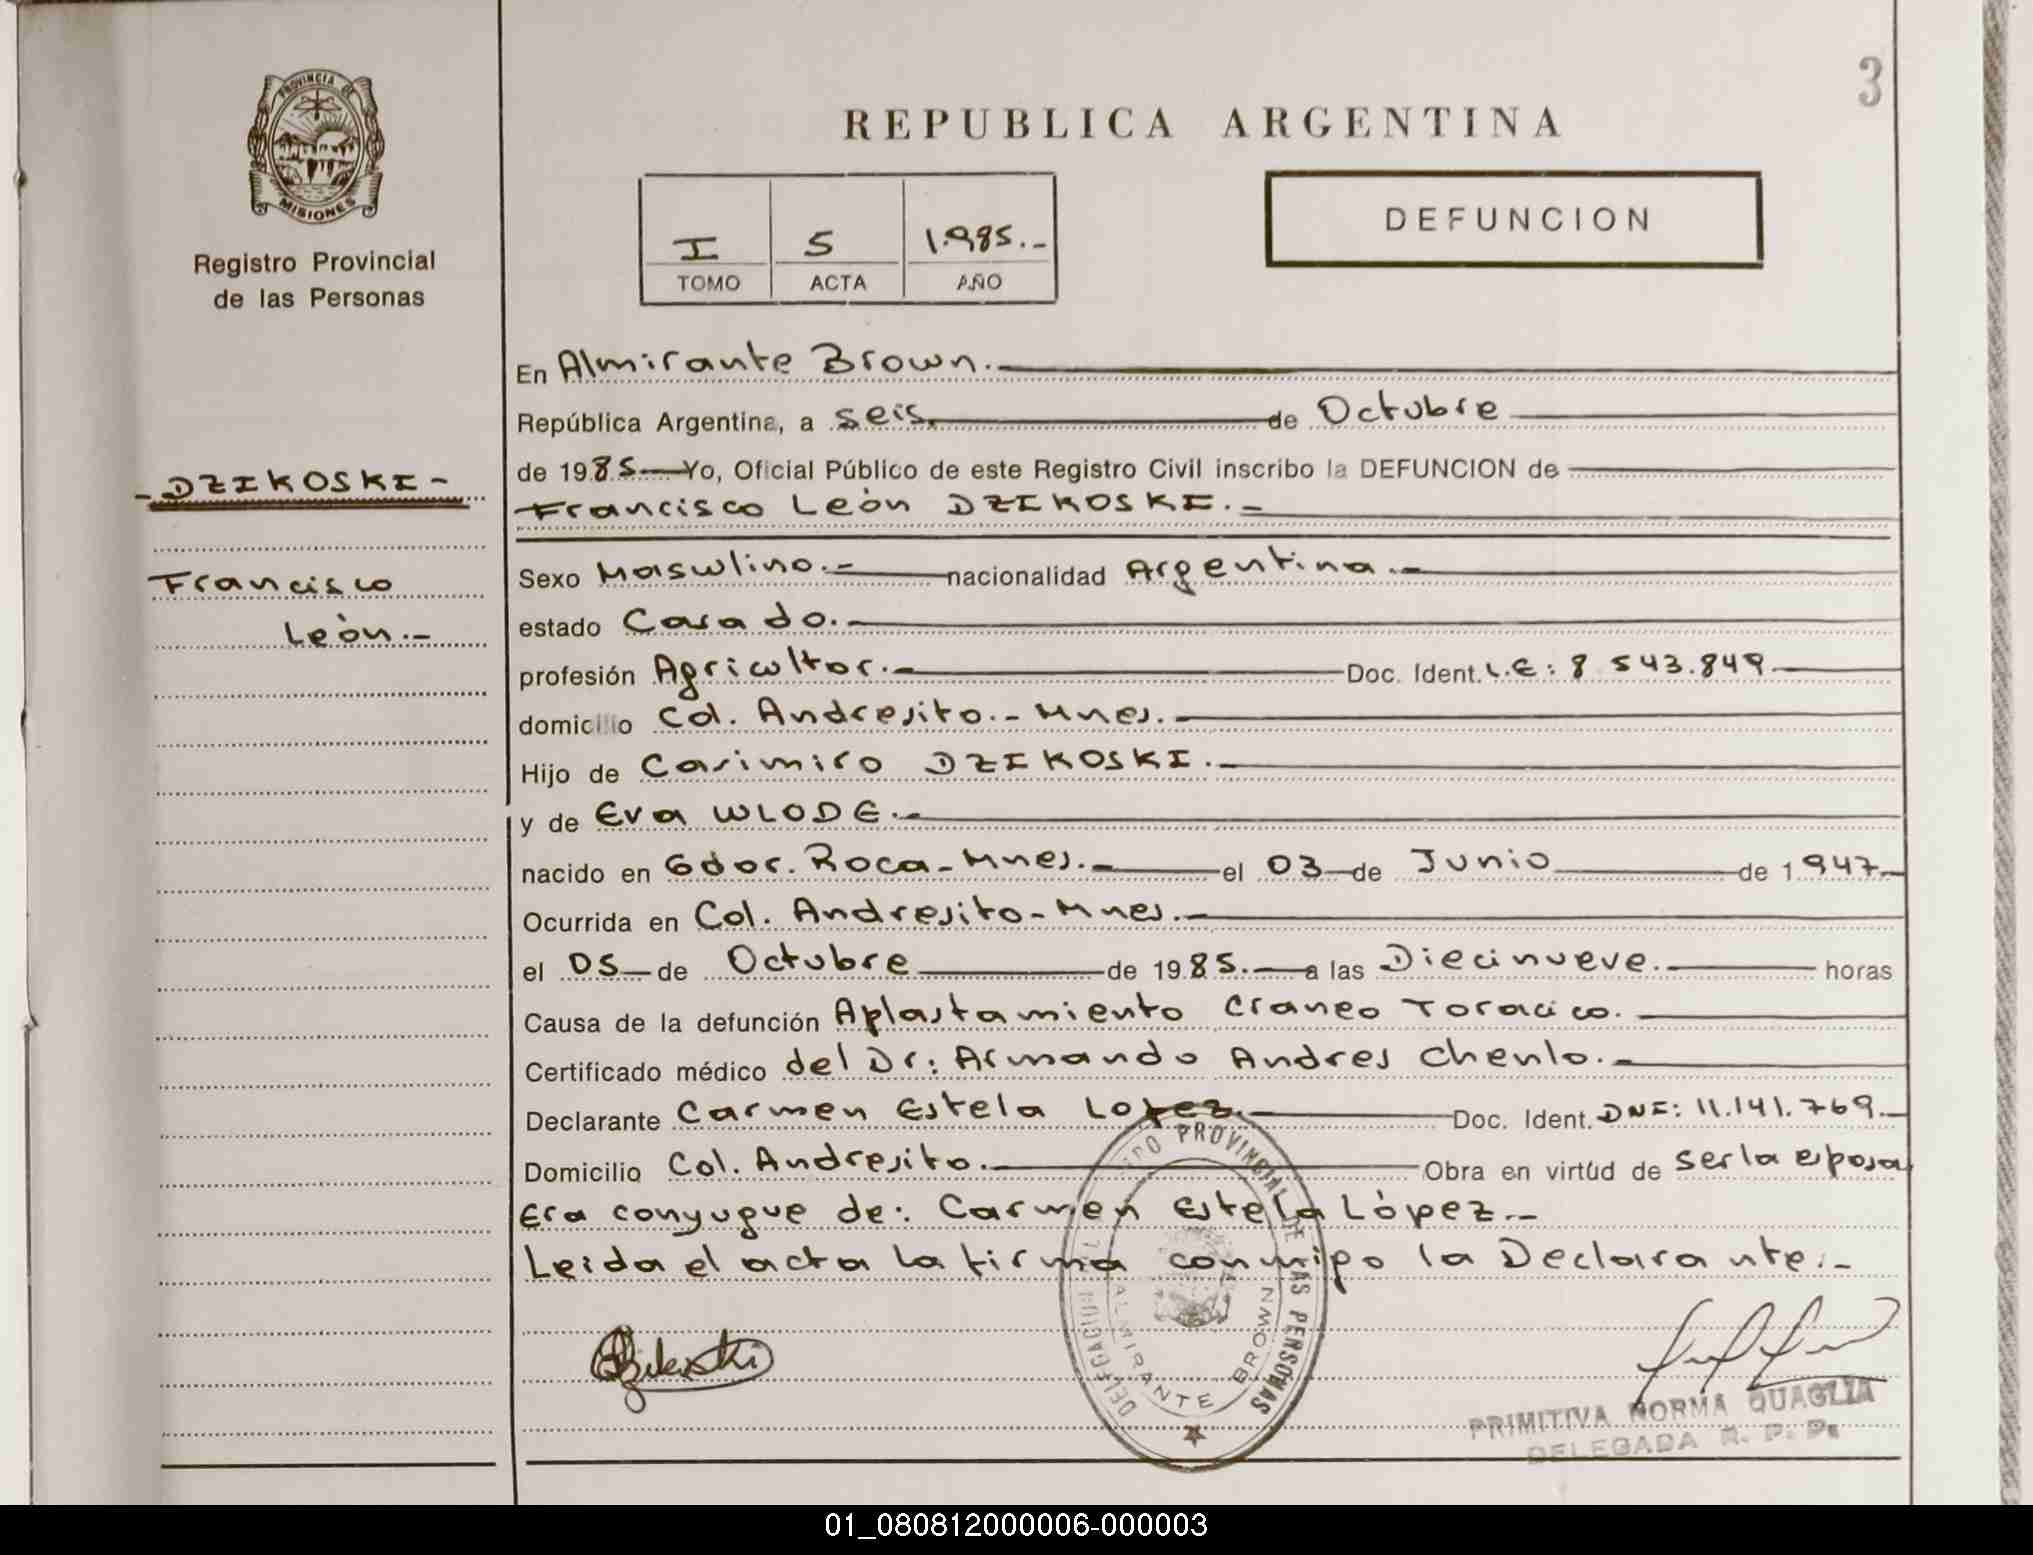 3
PROVINCIA DE
MISIONES
Registro Provincial
de las Personas
REPUBLICA ARGENTINA
DEFUNCION
I 5 1.985.-
TOMO ACTA AÑO
- DZIKOSKI -
Francisco
León.-
En Almirante Brown.
República Argentina, a seis de Octubre
de 1985 Yo, Oficial Público de este Registro Civil inscribo la DEFUNCION de
Francisco León DZIKOSKI.-
Sexo Masculino.- nacionalidad Argentina.-
estado Casado.-
profesión Agricultor.- Doc. Ident. L.E: 8 543.849
domicilio Col. Andresito.- Mnes.-
Hijo de Casimiro DZIKOSKI.-
y de Eva WLODE.-
nacido en Gdor. Roca - Mnes.- el 03 de Junio de 1.947.-
Ocurrida en Col. Andresito - Mnes.-
el 05 de Octubre de 1985. a las Diecinueve. horas
Causa de la defunción Aplastamiento Craneo Toracico.
Certificado médico del Dr: Armando Andres Chenlo.-
Declarante Carmen Estela Lopez.- Doc. Ident. DNI: 11.141.769.-
Domicilio Col. Andresito. Obra en virtúd de ser la esposa
Era conyugue de: Carmen Estela López.-
Leida el acta la firma conmigo la Declarante.-
PROVINCIAL DE LAS PERSONAS
DELEGACION
ALMIRANTE BROWN
PRIMITIVA NORMA QUAGLIA
DELEGADA R. P. P.
01_080812000006-000003